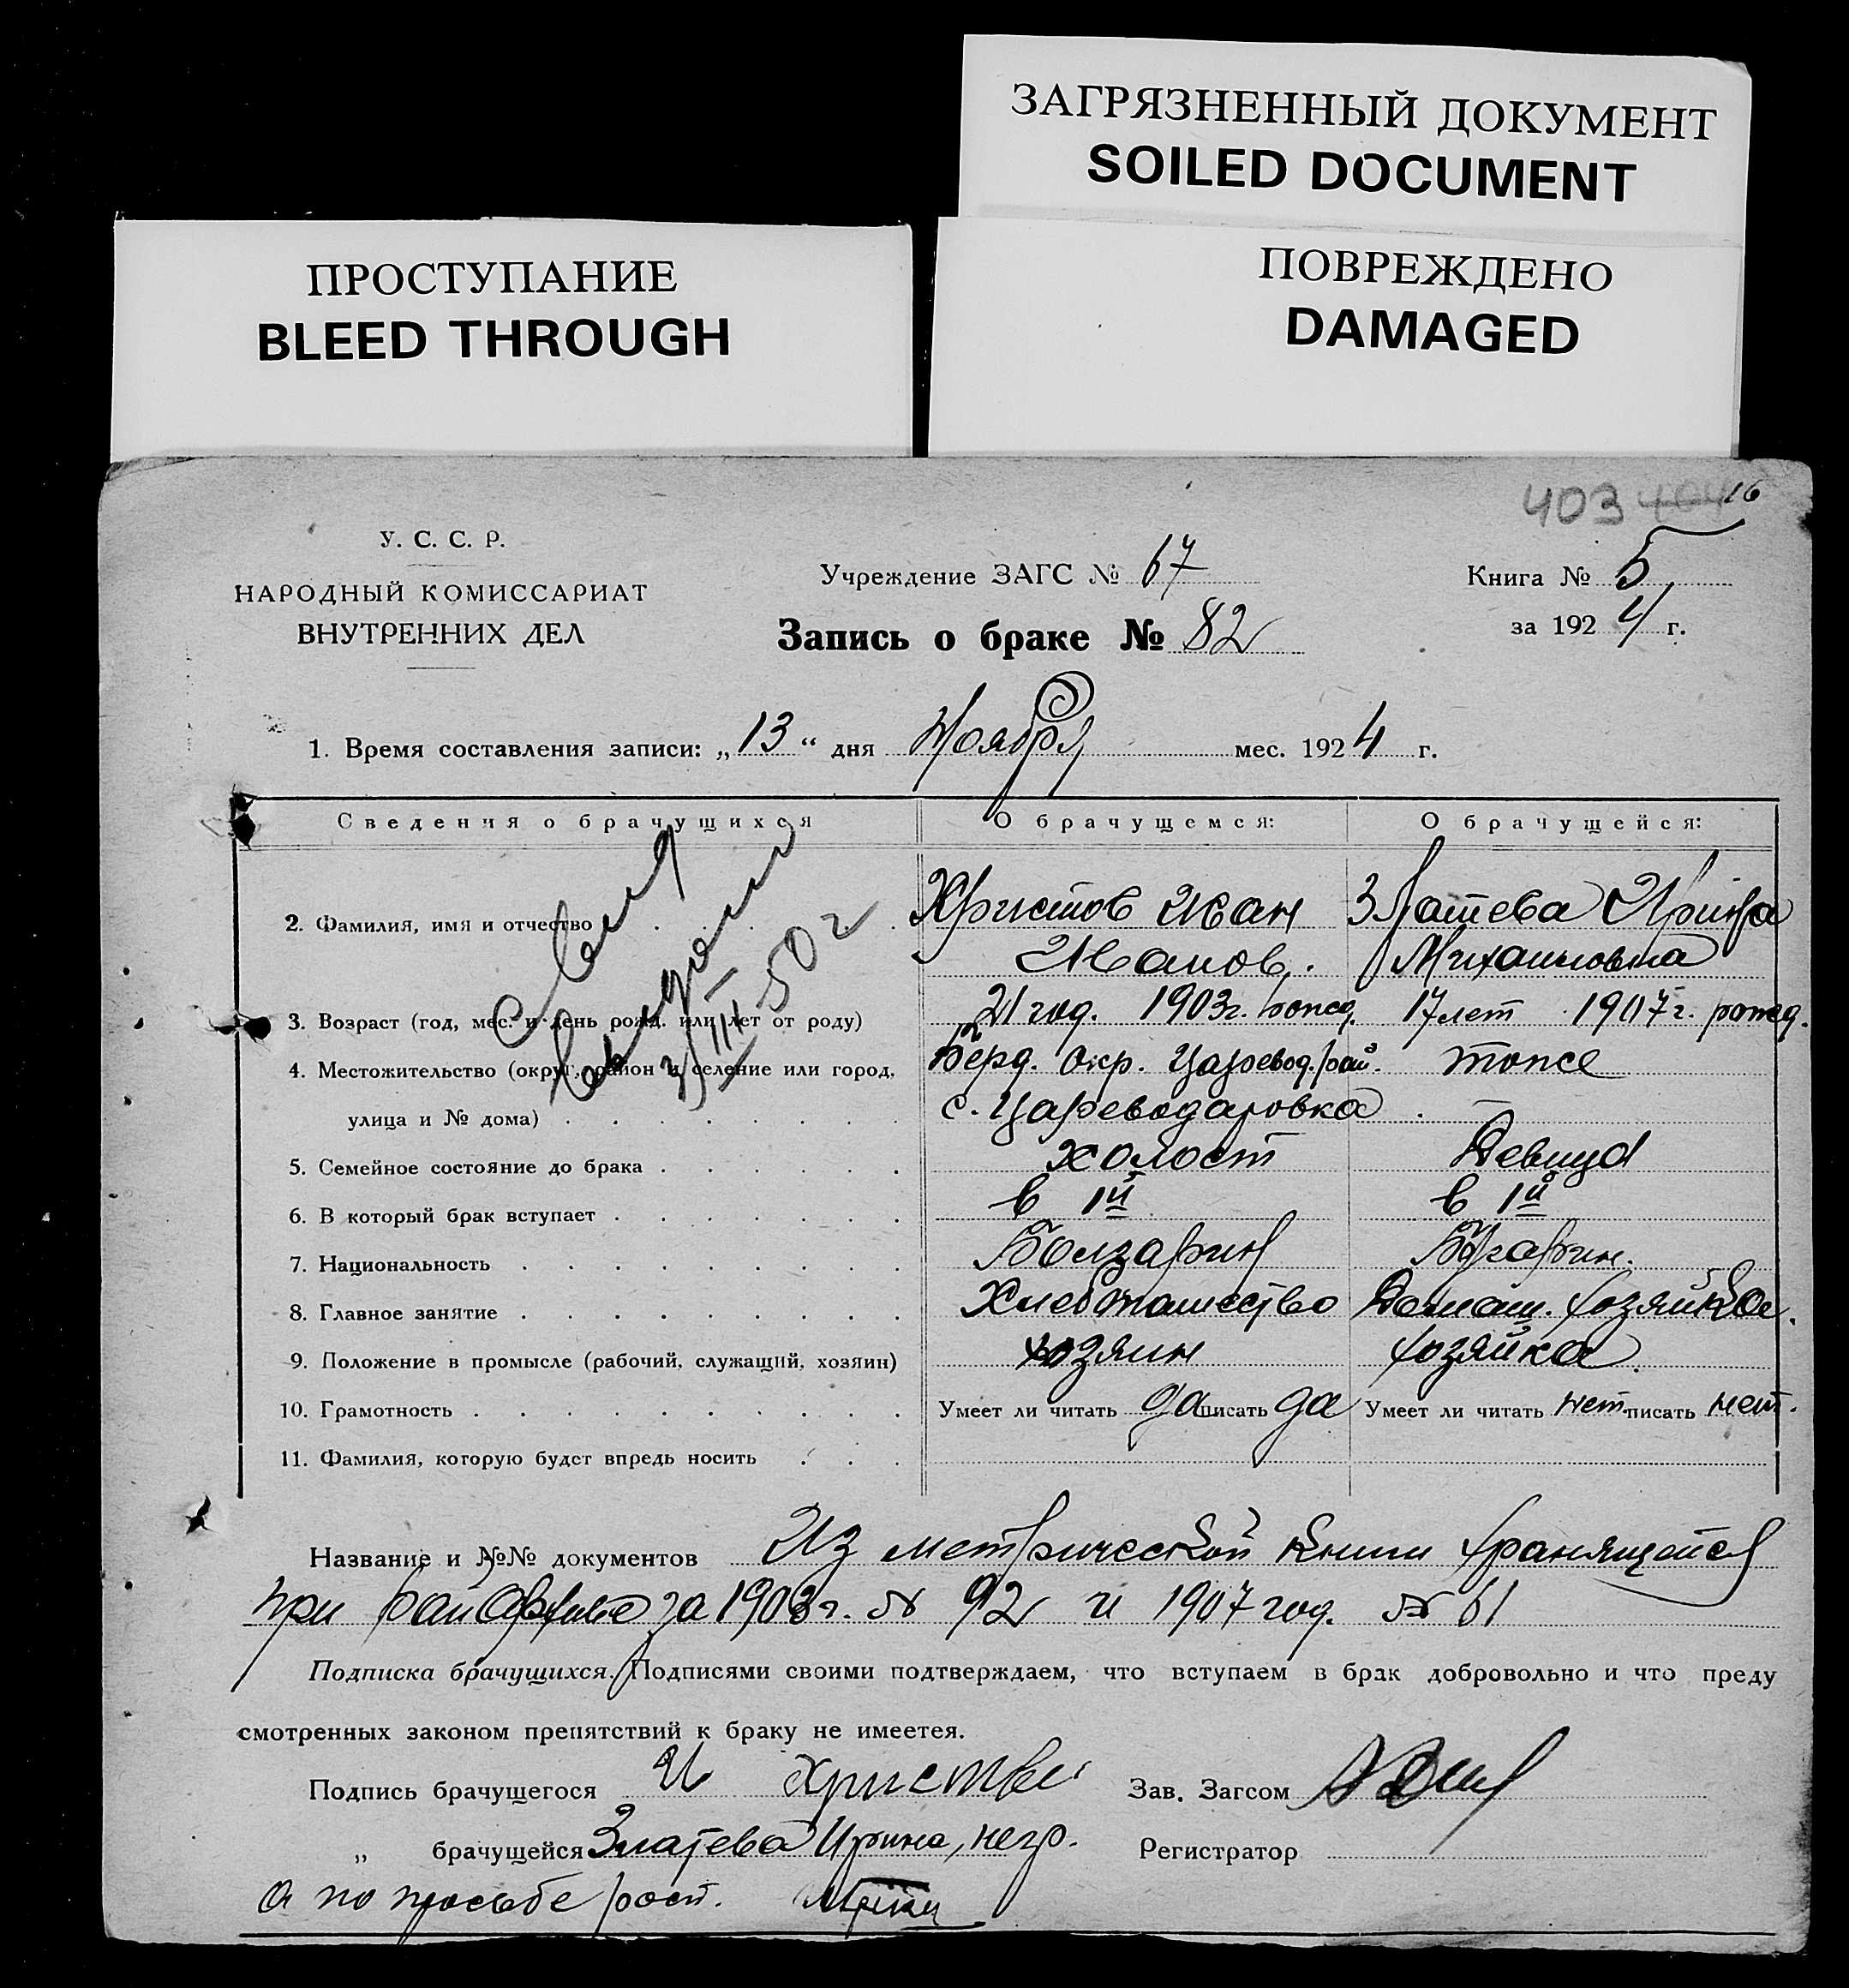 ЗАГРЯЗНЕННЫЙ ДОКУМЕНТ
SOILED DOCUMENT
ПРОСТУПАНИЕ
BLEED THROUGH
ПОВРЕЖДЕНО
DAMAGED
403 404 16
У. С. С. Р.
НАРОДНЫЙ КОМИССАРИАТ
ВНУТРЕННИХ ДЕЛ
Учреждение ЗАГС № 67
Запись о браке № 82
Книга № 5
за 1924 г.
1. Время составления записи: „13“ дня Ноября мес. 1924 г.
Сведения о брачущихся О брачущемся: О брачущейся:
2. Фамилия, имя и отчество Христов Иван Златева Ирина
Иванов. Михаиловна
3. Возраст (год, мес. и день рожд. или лет от роду) 21 год. 1903г. рожд. 17 лет 1907 г. рожд.
4. Местожительство (округ, район и селение или город, Берд. Окр. Царевод. рай. тоже
улица и № дома) с. Цареводаровка
5. Семейное состояние до брака холост Девица
6. В который брак вступает в 1й в 1й
7. Национальность Болгарин Бoлгарин.
8. Главное занятие Хлебопашество Домаш. хозяйкое.
9. Положение в промысле (рабочий, служащий, хозяин) хозяин хозяйка
10. Грамотность Умеет ли читать да писать да Умеет ли читать нет писать нет.
11. Фамилия, которую будет впредь носить
31 III 50 г
Название и №№ документов Из метрической книги хранящейся
при за 1903г. № 92 и 1907 год. № 61
Подписка брачущихся. Подписями своими подтверждаем, что вступаем в брак добровольно и что преду
смотренных законом препятствий к браку не имеется.
Подпись брачущегося И Христов Зав. Загсом
„ брачущейся Златева Ирина, негр. Регистратор
А по просьбе расп.